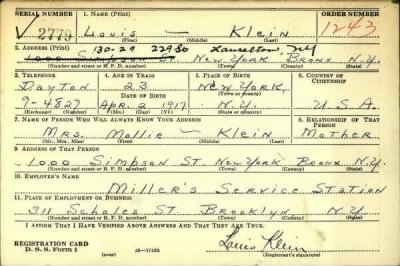 SERIAL NUMBER 1. NAME (Print) ORDER NUMBER
V 2779 Louis — Klein 1243
(First) (Middle) (Last)
130-29 229 St Laurelton, NY
2. ADDRESS (Print)
1000 Simpson St New York Bronx N.Y.
(Number and street or R. F. D. number) (Town) (County) (State)
3. TELEPHONE 4. AGE IN YEARS 5. PLACE OF BIRTH 6. COUNTRY OF CITIZENSHIP
Dayton 23 New York
DATE OF BIRTH (Town or county)
9-4827 Apr. 2 1917 N.Y. U.S.A.
(Exchange) (Number) (Mo.) (Day) (Yr.) (State or country)
7. NAME OF PERSON WHO WILL ALWAYS KNOW YOUR ADDRESS 8. RELATIONSHIP OF THAT PERSON
Mrs. Mollie — Klein Mother
(Mr., Mrs., Miss) (First) (Middle) (Last)
9. ADDRESS OF THAT PERSON
1000 Simpson St New York Bronx N.Y.
(Number and street or R. F. D. number) (Town) (County) (State)
10. EMPLOYER'S NAME
Miller's Service Station
11. PLACE OF EMPLOYMENT OR BUSINESS
311 Scholes St Brooklyn N.Y.
(Number and street or R. F. D. number) (Town) (County) (State)
I AFFIRM THAT I HAVE VERIFIED ABOVE ANSWERS AND THAT THEY ARE TRUE.
REGISTRATION CARD Louis Klein
D. S. S. Form 1 (over) 16—17105 (Registrant's signature)